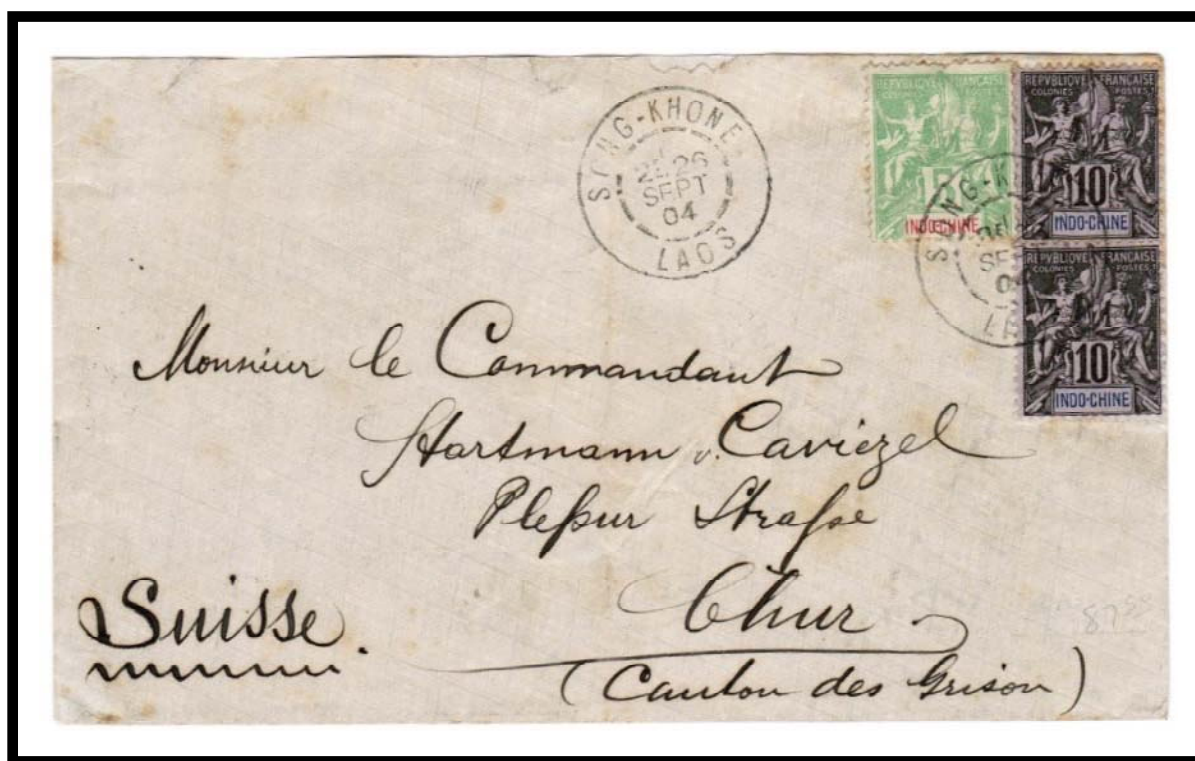 SONG-KHONE
2E 26
SEPT
04
LAOS
REPVBLIQVE FRANÇAISE
COLONIES POSTES
5
INDO-CHINE
REPVBLIQVE FRANÇAISE
COLONIES POSTES
10
INDO-CHINE
SONG-K
SE
REPVBLIQVE FRANÇAISE
COLONIES POSTES
10
INDO-CHINE
Monsieur le Commandant
Hartmann v. Caviezel
Pleßur Straſse
Chur
Suisse.
(Canton des Grison)